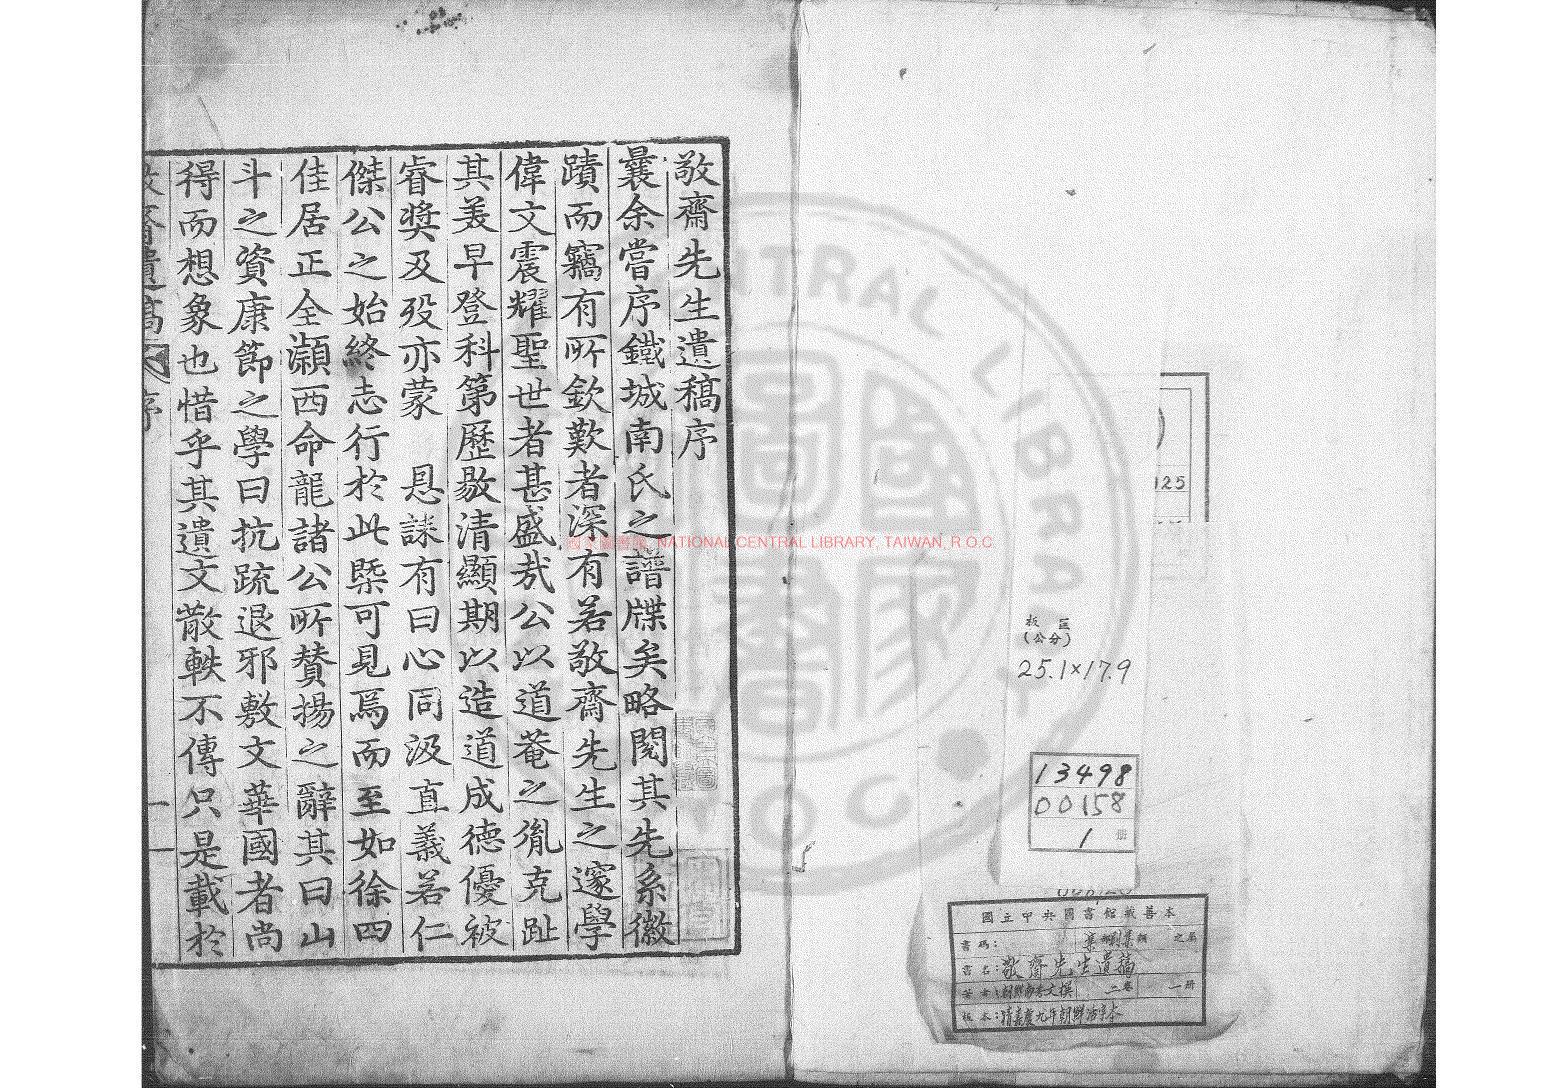 敬齋先生遺稿序
曩余嘗序鐵城南氏之譜牒矣略閱其先系徽
蹟而竊有所欽歎者深有若敬齋先生之邃學
偉文震耀聖世者甚盛哉公以道菴之胤克趾
其美早登科第歷敭清顯期以造道成德優被
睿奬及歿亦蒙 恩誄有曰心同汲直義若仁
傑公之始終志行於此槩可見焉而至如徐四
佳居正全灝西命龍諸公所贊揚之辭其曰山
斗之資康節之學曰抗疏退邪敷文華國者尚
得而想象也惜乎其遺文散軼不傳只是載於
敬齋遺稿 序
一
國家圖書館 NATIONAL CENTRAL LIBRARY, TAIWAN, R.O.C.
125
板匡
(公分)
25.1×17.9
13498
00158
1 冊
國立中央圖書館藏善本
書碼: 集 別集 類 之屬
書名: 敬齋先生遺稿
著者: 朝鮮南秀文撰 二卷 一冊
板本: 清嘉慶九年朝鮮活字本